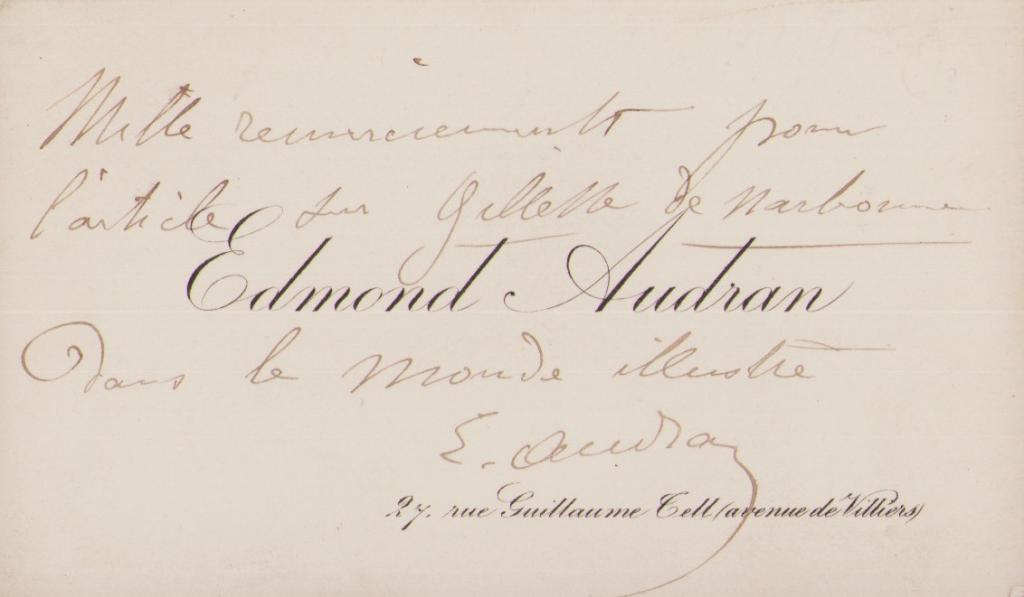 Mille remerciements pour
l'article sur Gillette de Narbonne
Edmond Audran
Dans le Monde illustré
E. Audran
27. rue Guillaume Tell (avenue de Villiers)